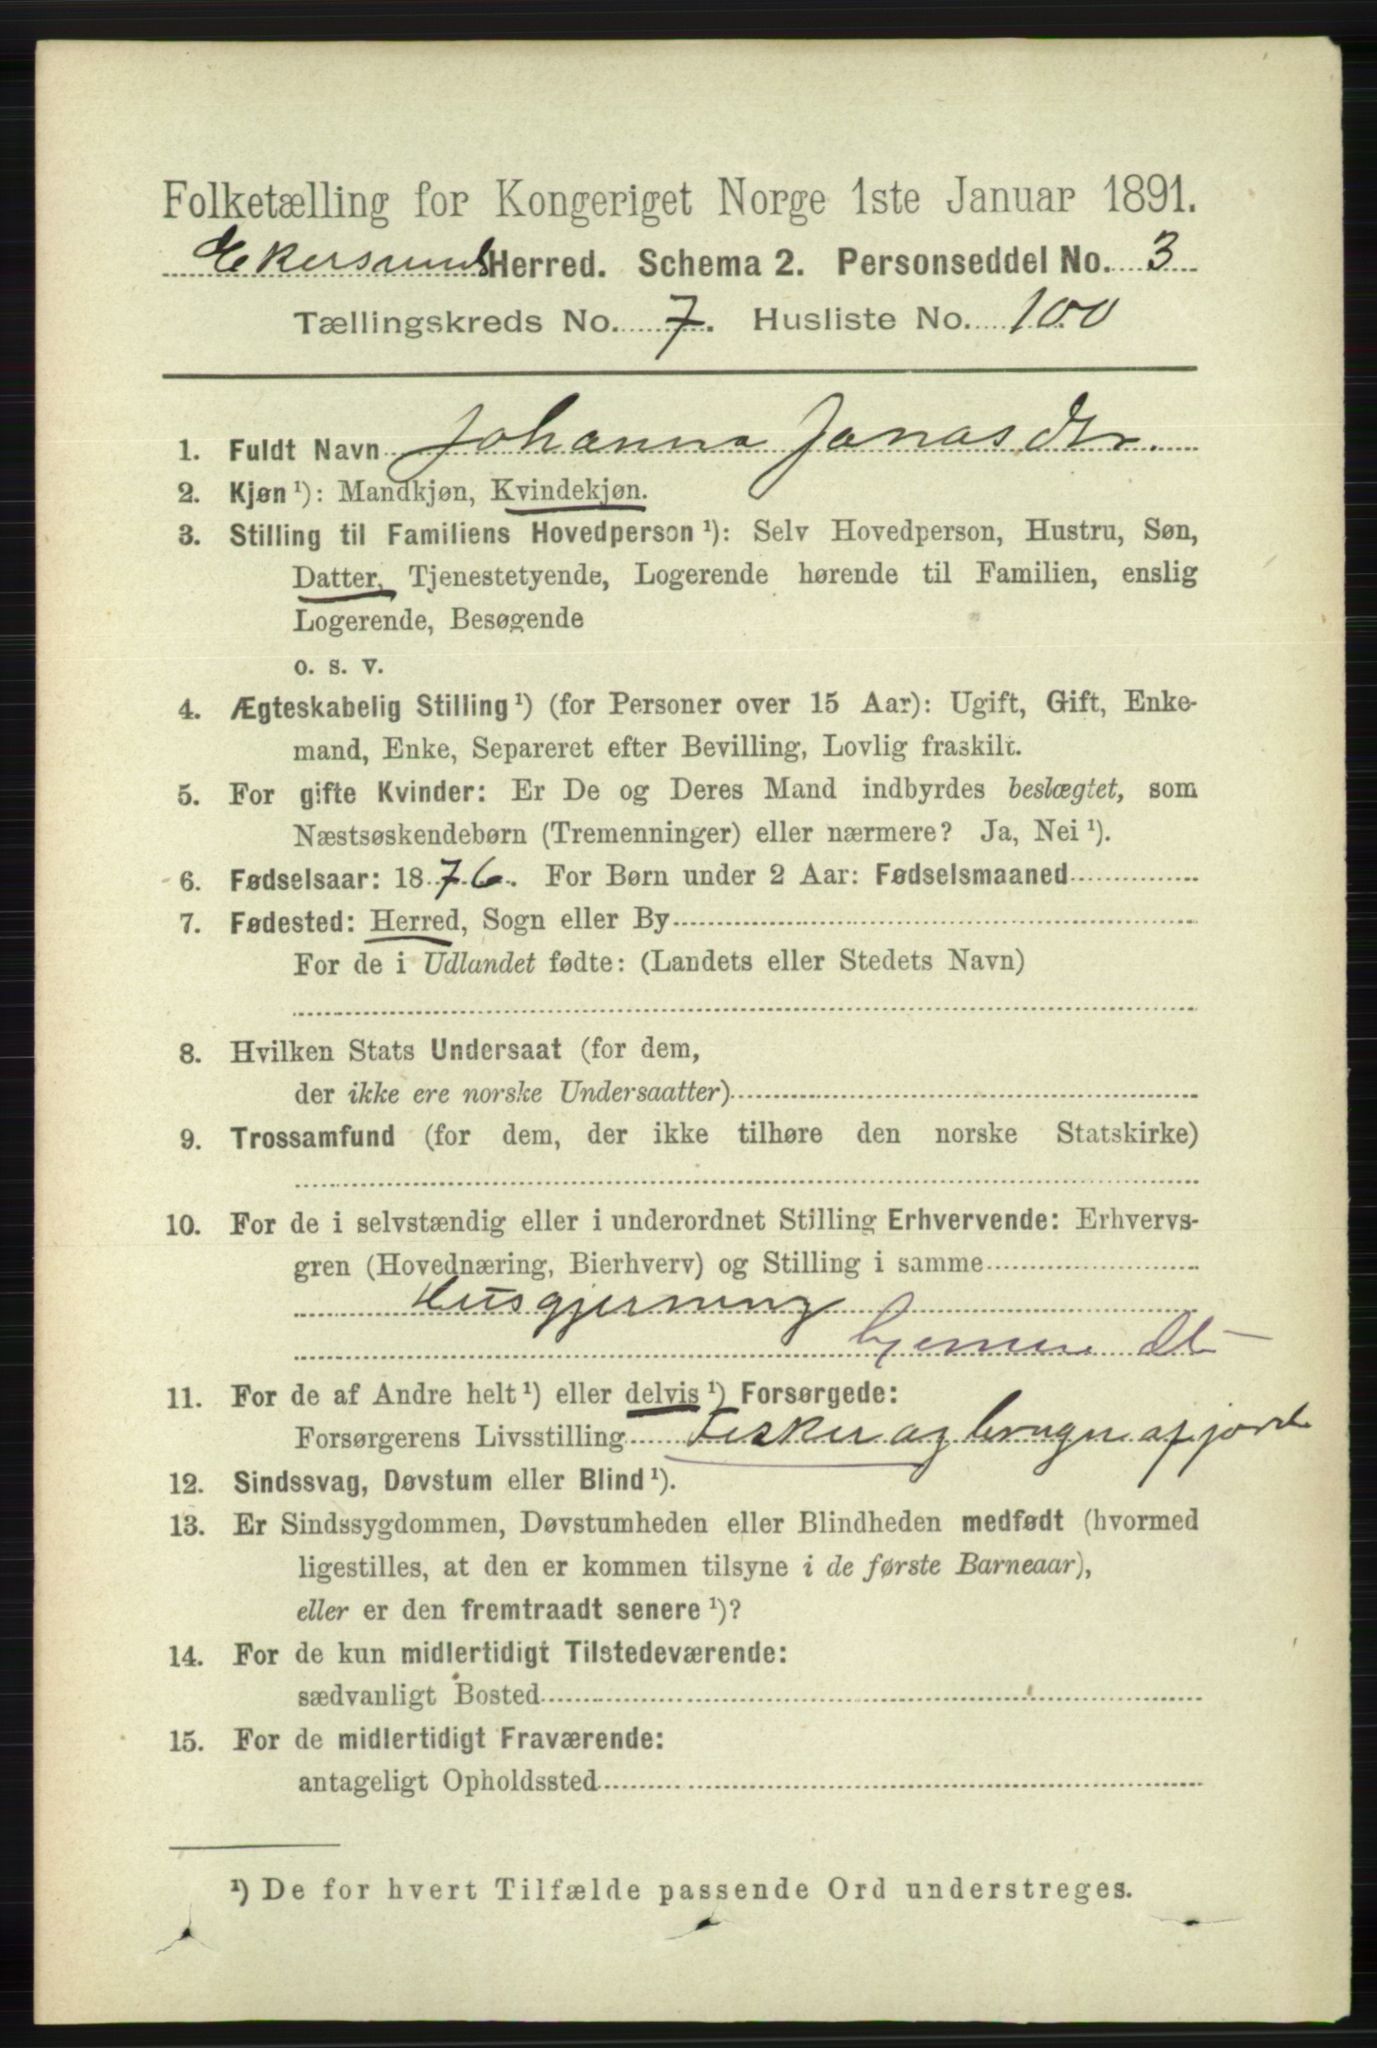 Folketælling for Kongeriget Norge 1ste Januar 1891.
Ekersunds Herred. Schema 2. Personseddel No. 3
Tællingskreds No. 7. Husliste No. 100
1. Fuldt Navn Johanna Jonasdtr.
2. Kjøn ¹): Mandkjøn, Kvindekjøn.
3. Stilling til Familiens Hovedperson ¹): Selv Hovedperson, Hustru, Søn,
Datter, Tjenestetyende, Logerende hørende til Familien, enslig
Logerende, Besøgende
o. s. v.
4. Ægteskabelig Stilling ¹) (for Personer over 15 Aar): Ugift, Gift, Enke-
mand, Enke, Separeret efter Bevilling, Lovlig fraskilt.
5. For gifte Kvinder: Er De og Deres Mand indbyrdes beslægtet, som
Næstsøskendebørn (Tremenninger) eller nærmere? Ja, Nei ¹).
6. Fødselsaar: 1876. For Børn under 2 Aar: Fødselsmaaned
7. Fødested: Herred, Sogn eller By
For de i Udlandet fødte: (Landets eller Stedets Navn)
8. Hvilken Stats Undersaat (for dem,
der ikke ere norske Undersaatter)
9. Trossamfund (for dem, der ikke tilhøre den norske Statskirke)
10. For de i selvstændig eller i underordnet Stilling Erhvervende: Erhvervs-
gren (Hovednæring, Bierhverv) og Stilling i samme
Husgjerning
hjemme
11. For de af Andre helt ¹) eller delvis ¹) Forsørgede:
Forsørgerens Livsstilling Fisker og bruger af jord
12. Sindssvag, Døvstum eller Blind ¹).
13. Er Sindssygdommen, Døvstumheden eller Blindheden medfødt (hvormed
ligestilles, at den er kommen tilsyne i de første Barneaar),
eller er den fremtraadt senere ¹)?
14. For de kun midlertidigt Tilstedeværende:
sædvanligt Bosted
15. For de midlertidigt Fraværende:
antageligt Opholdssted
¹) De for hvert Tilfælde passende Ord understreges.